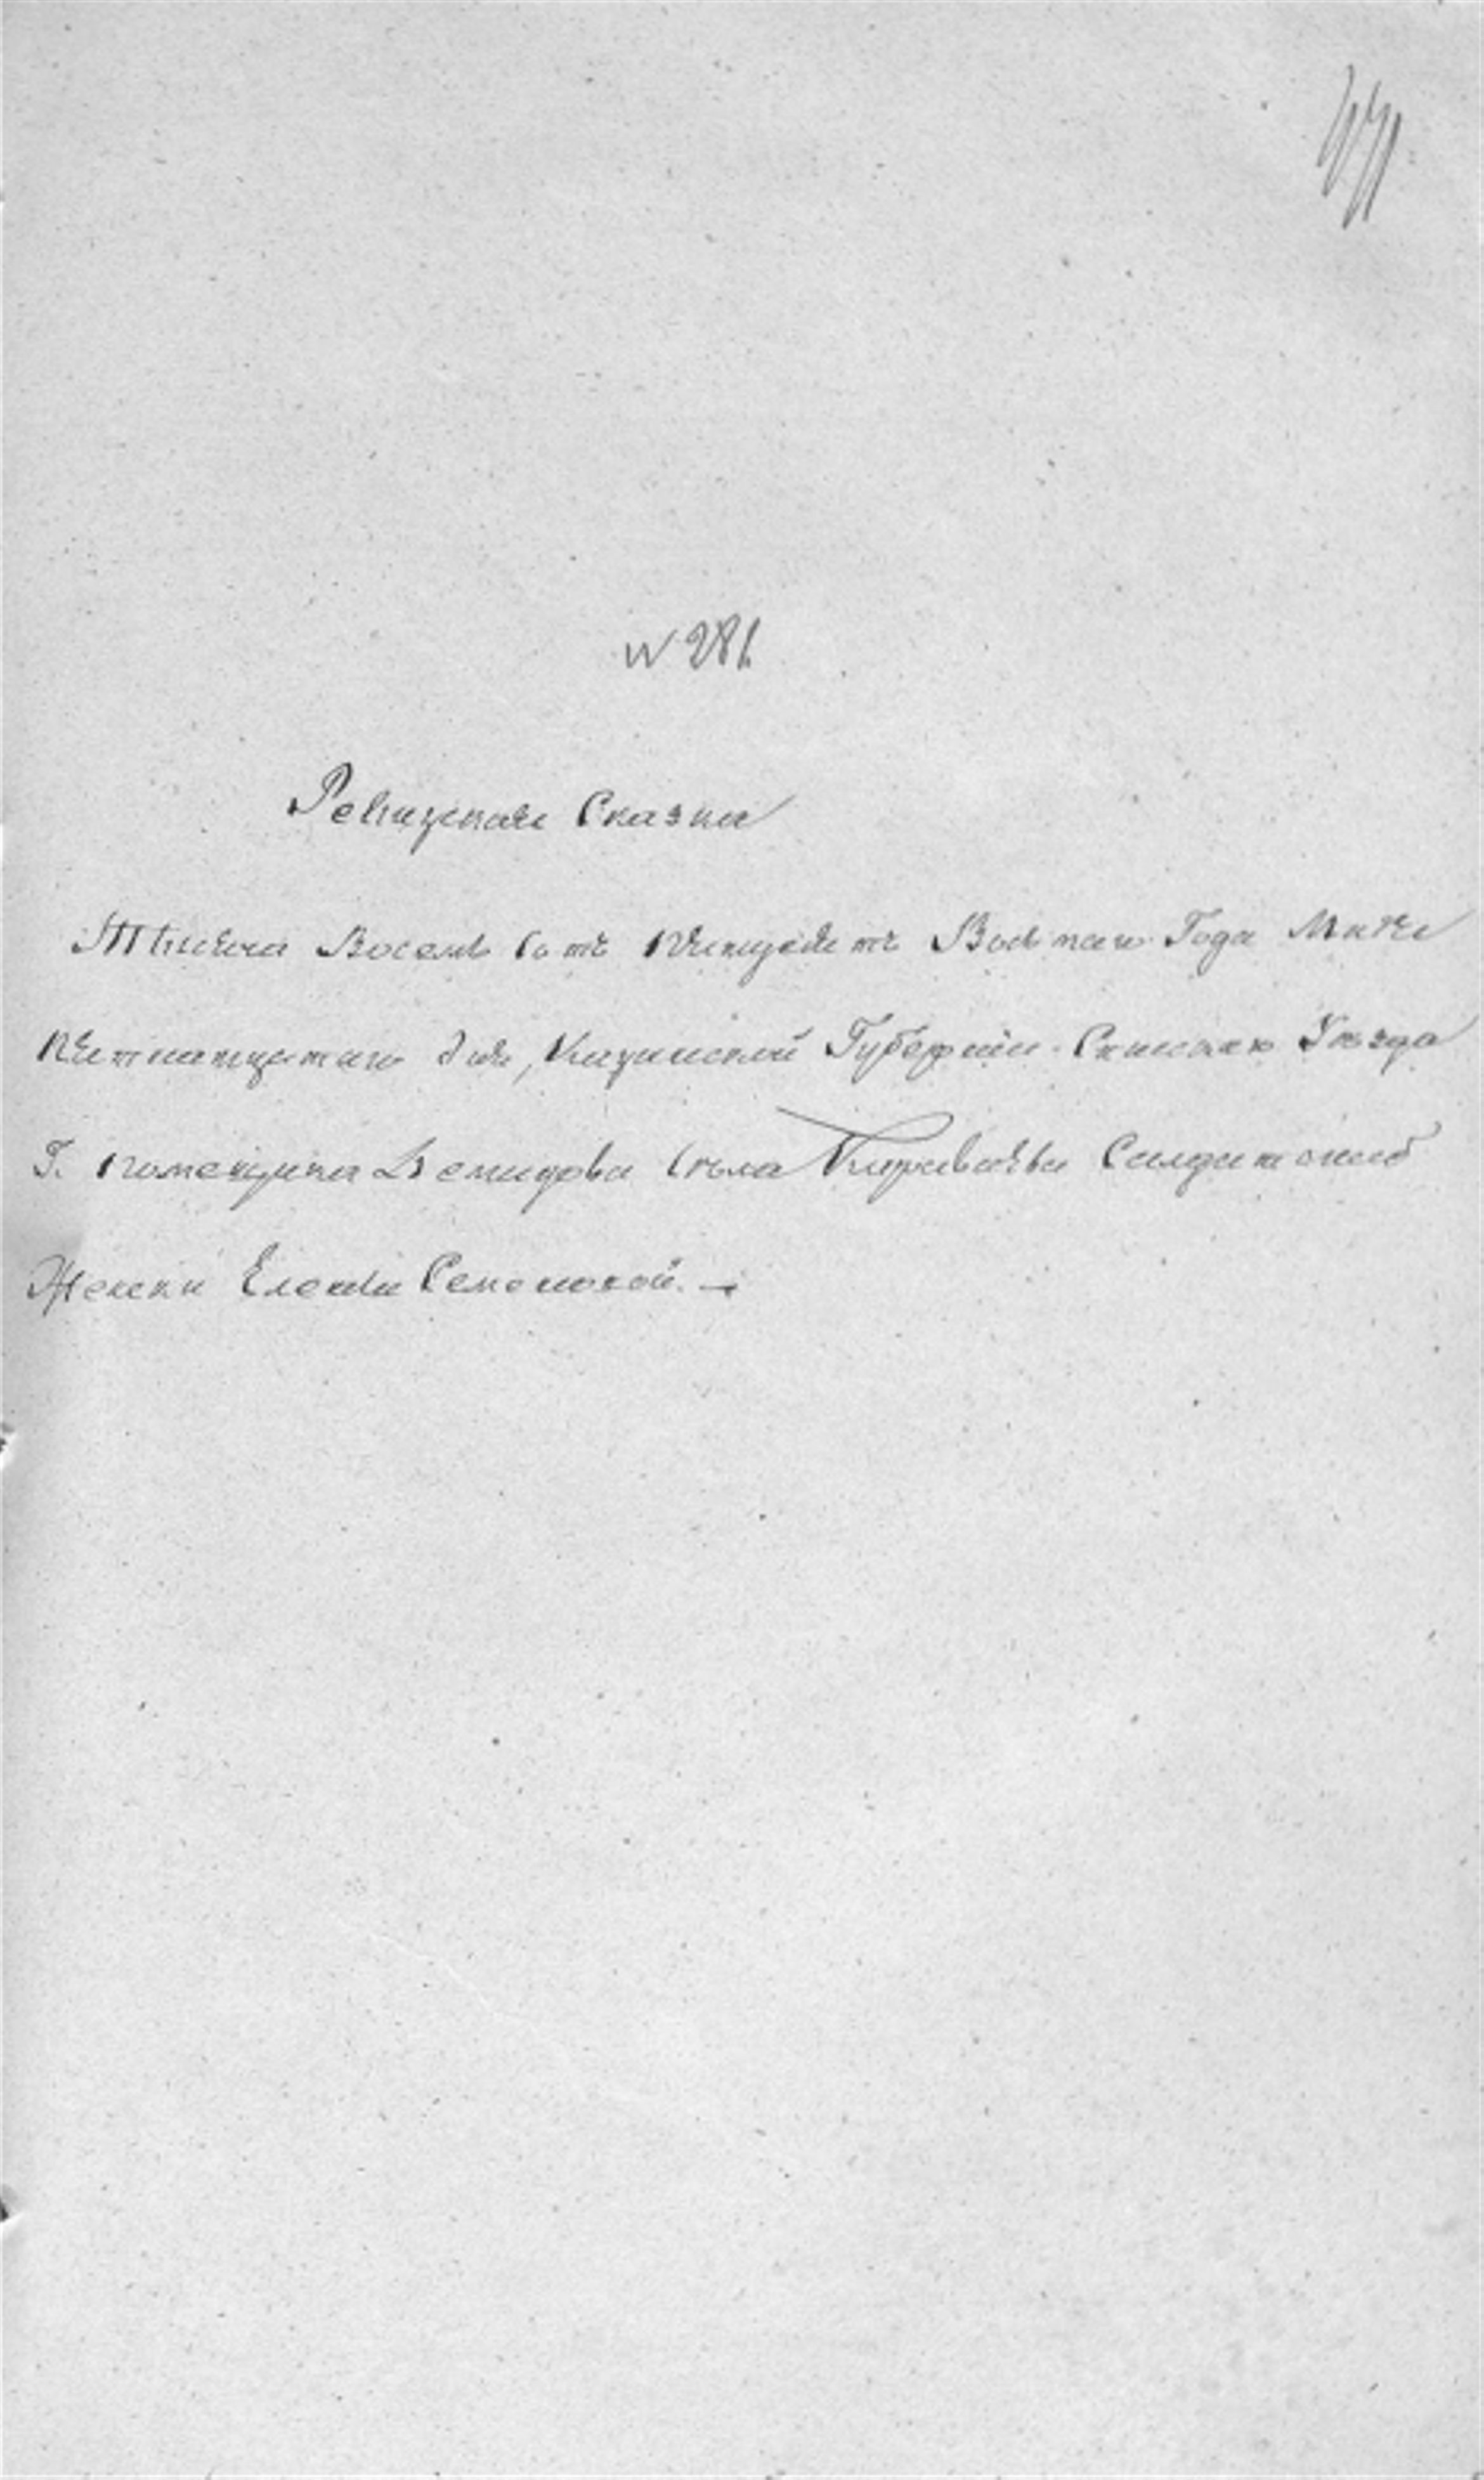 N 281
Ревизская Сказка
Тысяча Восемь Сотъ Пятьдесятъ Восьмаго Года Маія
Пятнадцатаго дня, Казанской Губерніи Спасскаго Уезда
Г. Помещика Демидова Села Солдатской
Женки Елены Семеновой. —